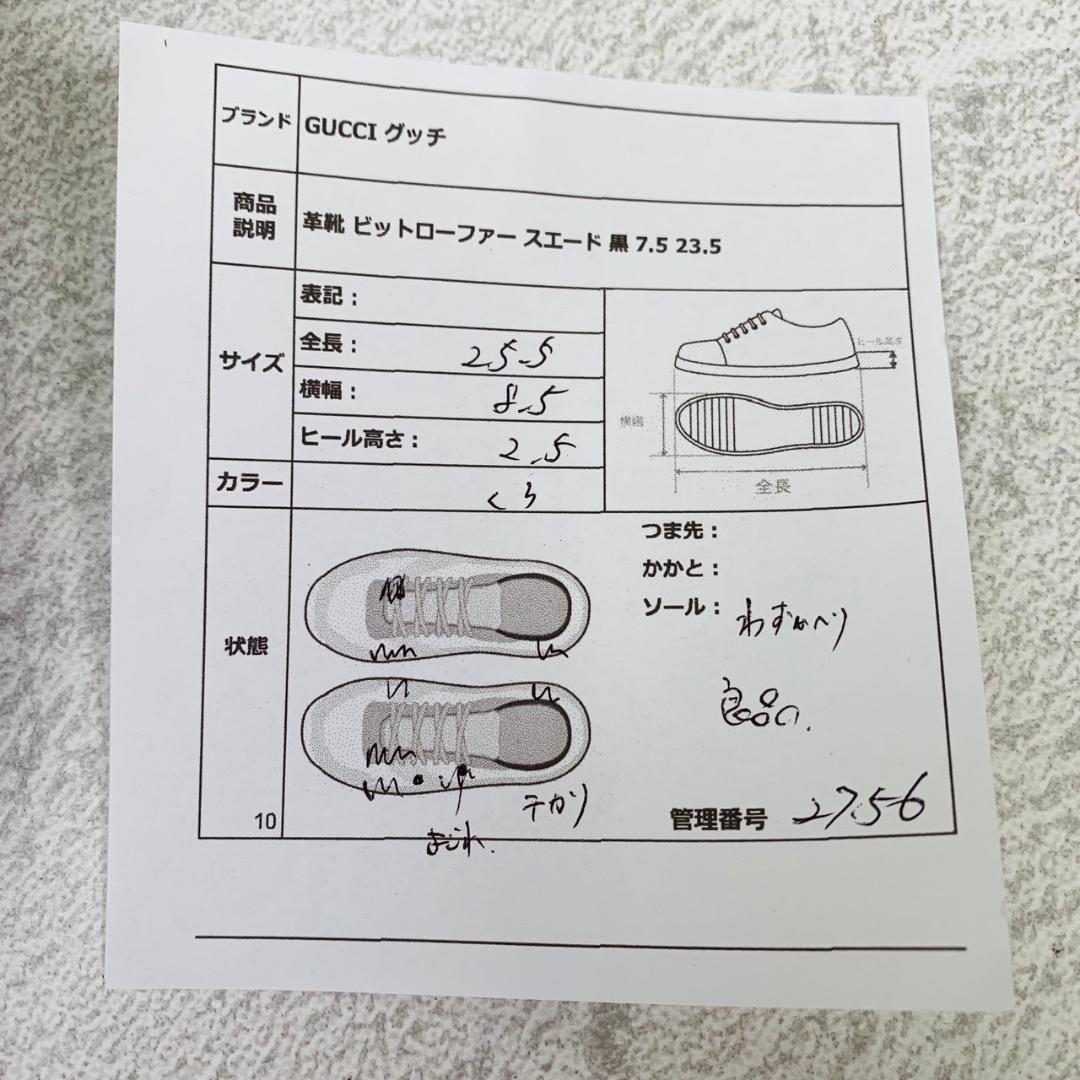 ブランド GUCCI グッチ
商品
説明
革靴 ビットローファー スエード 黒 7.5 23.5
サイズ
表記：
全長： 25.5
横幅： 8.5
ヒール高さ： 2.5
ヒール高さ
横幅
全長
カラー くろ
状態
つま先：
かかと：
ソール： わずかヘリ
良品
テカリ
よごれ.
管理番号 2756
10